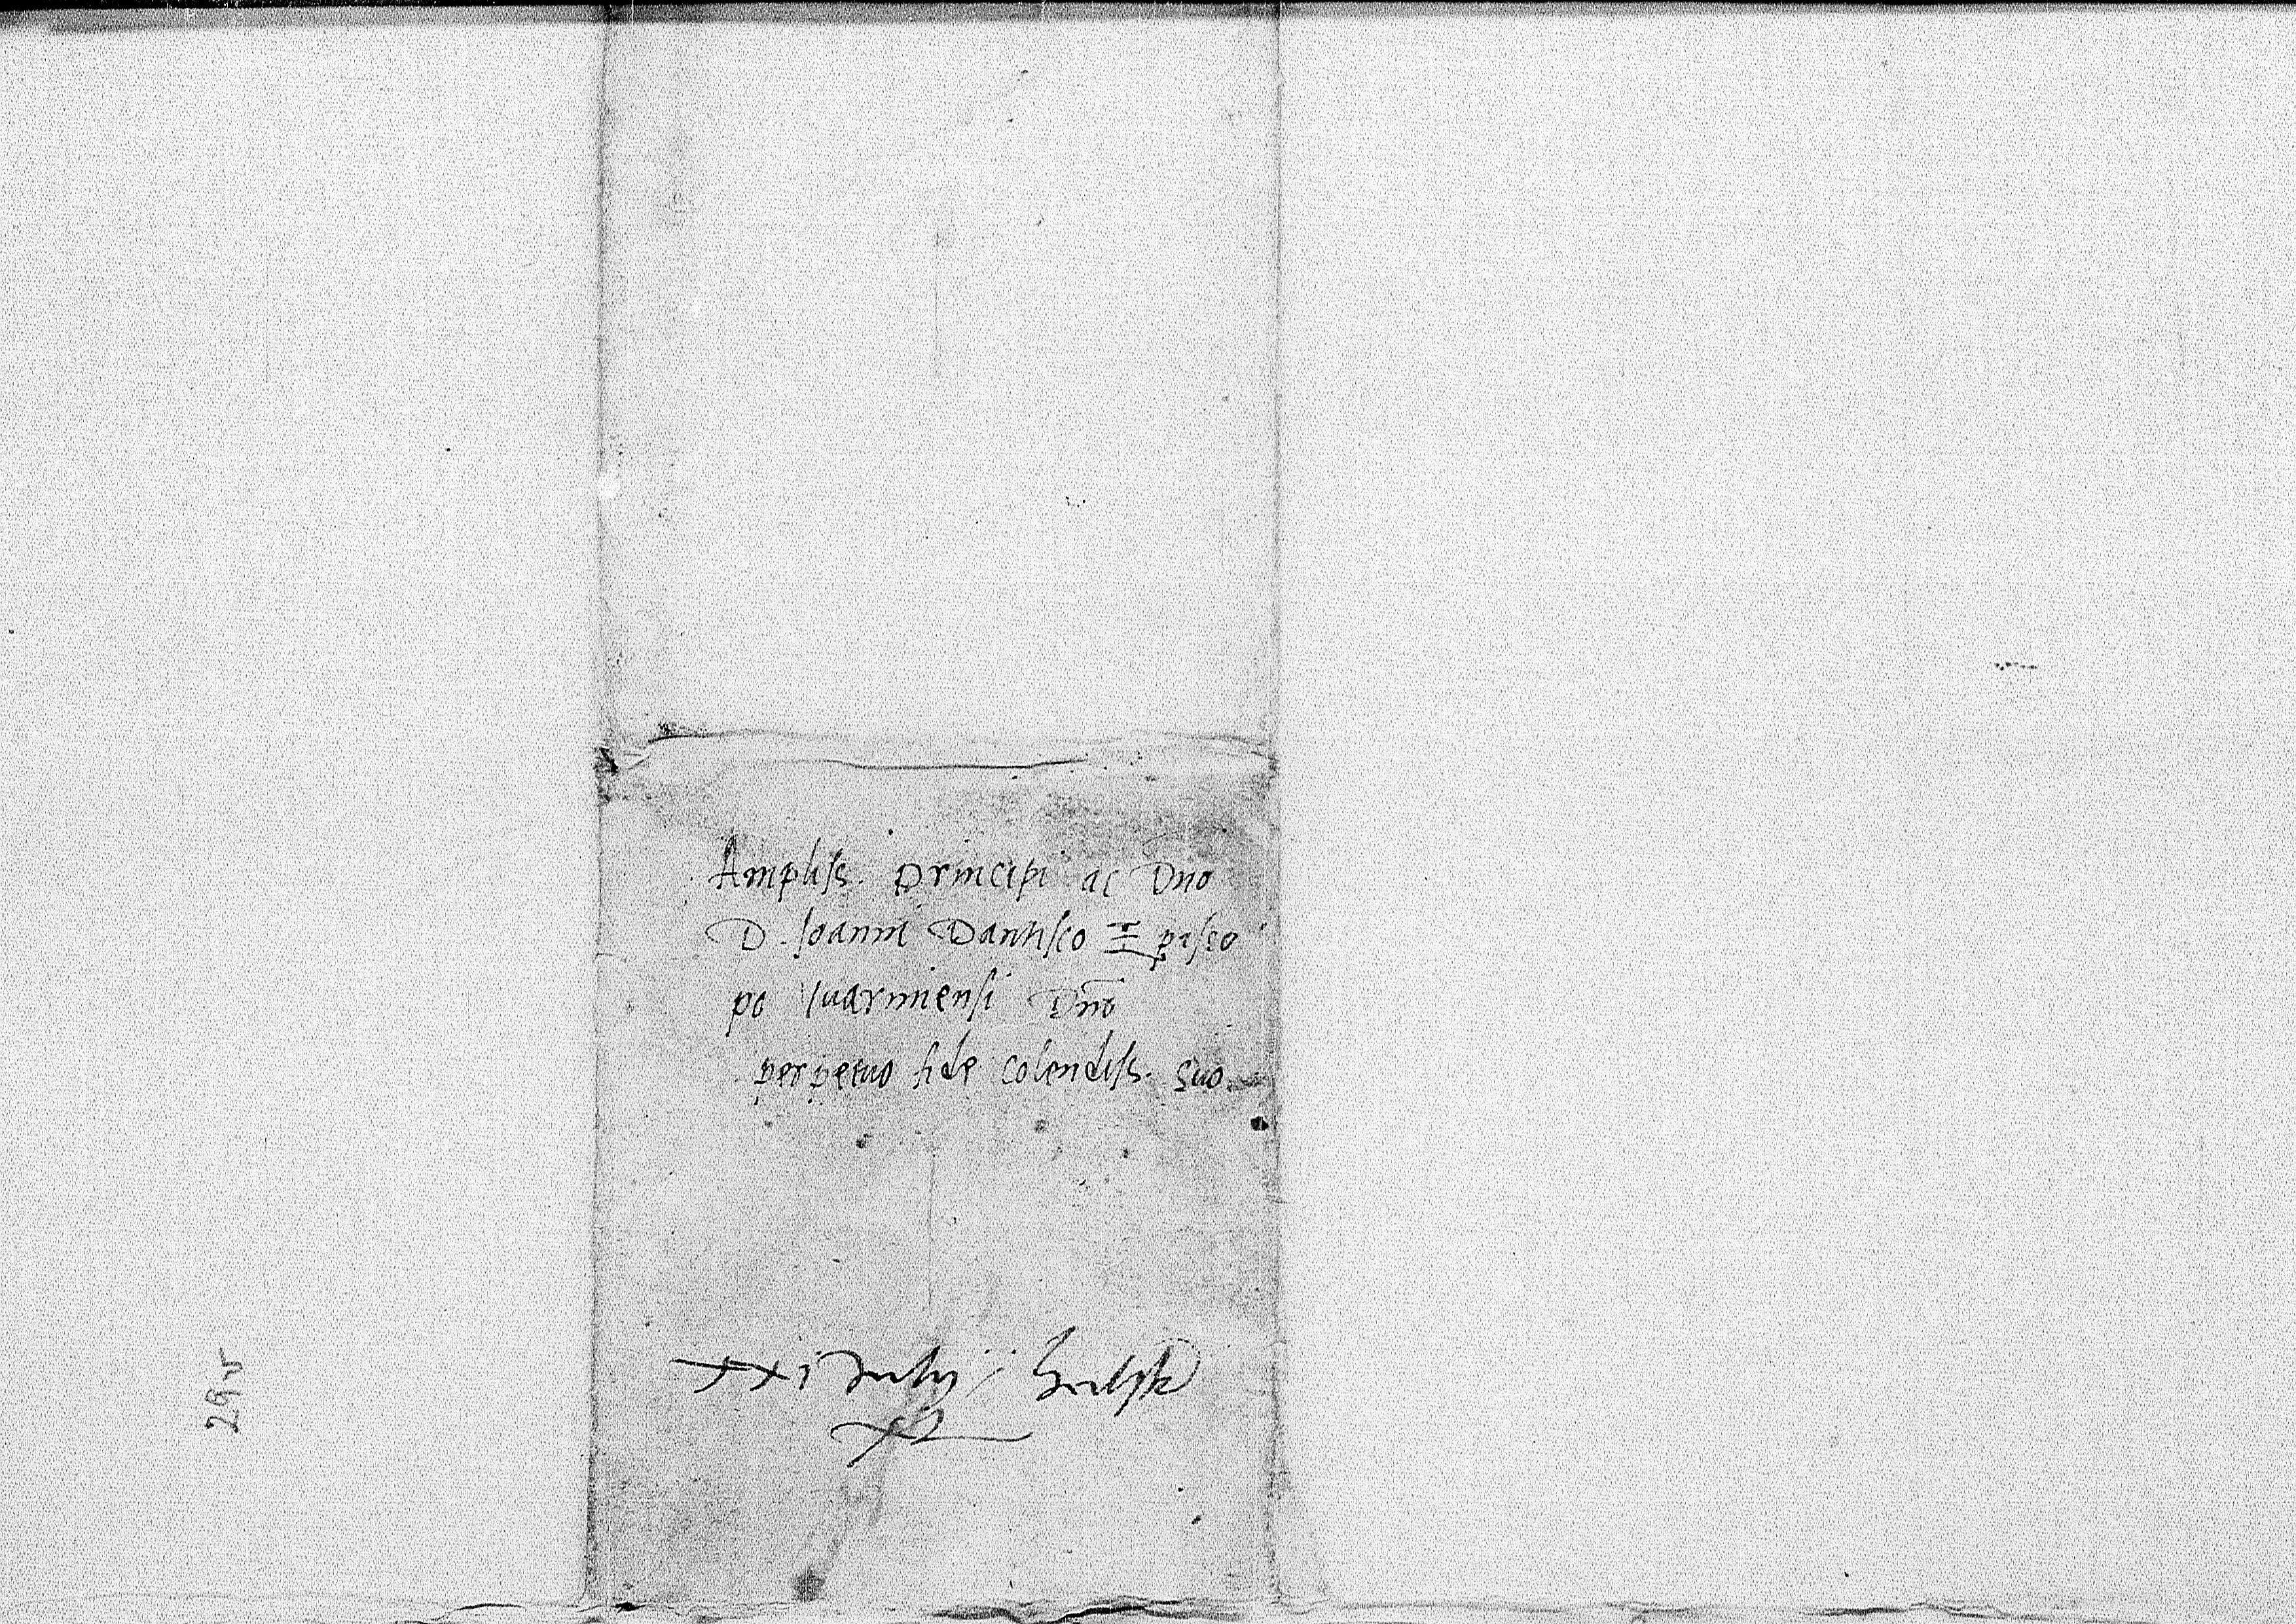 Ampliss. Principi ac Dno
D. Joanni Dantisco Episco
po Warmiensi Dno
perpetuo fide colendiss. suo.
xxi Julij
29v